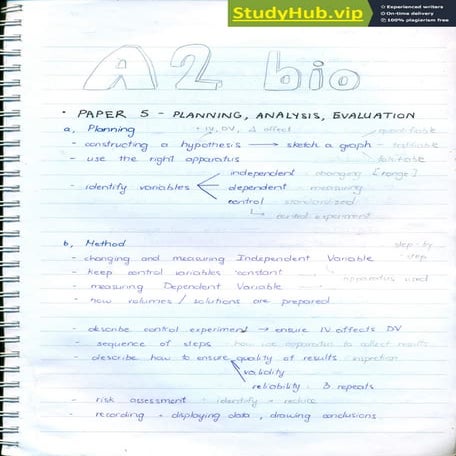 StudyHub.vip
Experienced writers
On-time delivery
100% plagiarism free
A2 bio
• PAPER 5 - PLANNING, ANALYSIS, EVALUATION
a, Planning • IV, DV, Δ effect quantifiable
- constructing a hypothesis → sketch a graph - testable
- use the right apparatus falsifiable
independent : changing [range]
- identify variables dependent - measuring
control standardized
control experiment
b, Method step-by
- changing and measuring Independent Variable step
- keep control variables constant apparatus used
- measuring Dependent Variable
- how volumes / solutions are prepared
- describe control experiment → ensure IV affects DV
- sequence of steps how use apparatus to collect results
- describe how to ensure quality of results
validity
reliability : 3 repeats
- risk assessment - identify + reduce
- recording - displaying data, drawing conclusions